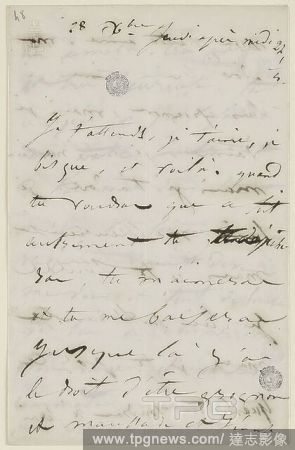 48
28 Xbre jeudi après midi
2h 1/2
Je t'attends, je t'aime, je
bisque, et voilà. quand
tu voudras que ce soit
autrement tu
ras, tu m'aimeras
et tu me baiseras
jusque là j'ai
le droit d'être grognon
et maussade et
TPG
www.tpgnews.com/達志影像